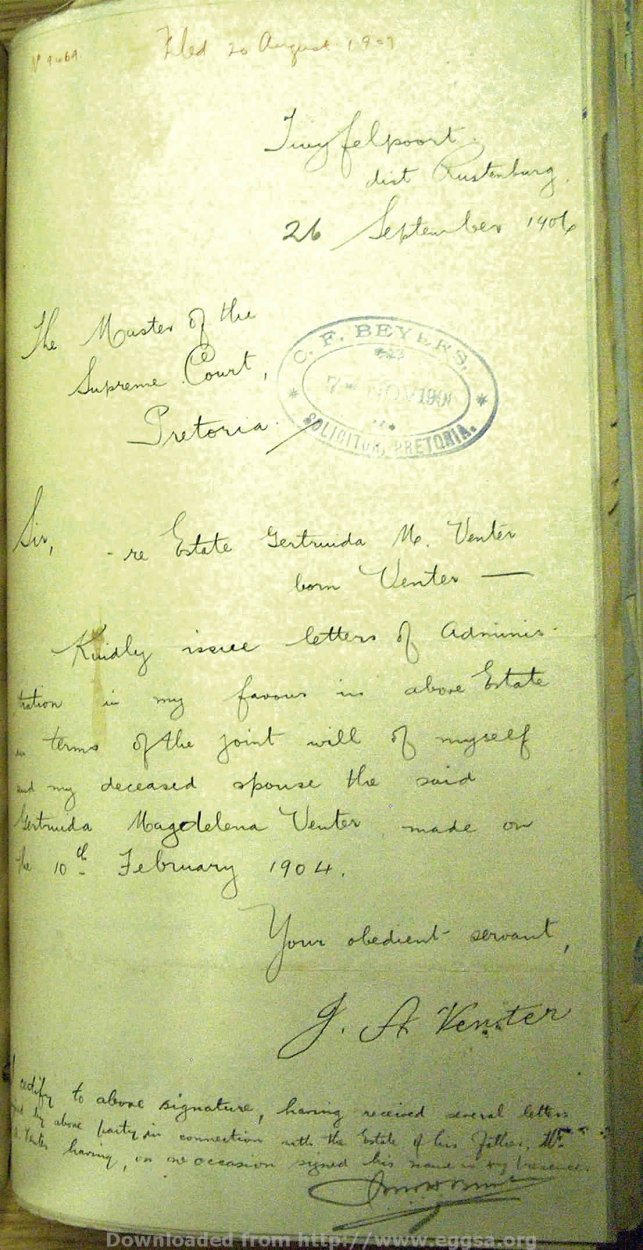 Filed 20 August 1907
Twyfelpoort
dist Rustenburg.
26 September 1906
The Master of the
Supreme Court,
Pretoria.
C. F. BEYERS,
7 NOV 190
SOLICITOR, PRETORIA.
Sir,
- re Estate Gertruida M. Venter
born Venter —
Kindly issue letters of Adminis-
tration in my favour in above Estate
in terms of the joint will of myself
and my deceased spouse the said
Gertruida Magdelena Venter, made on
the 10th February 1904.
Your obedient servant,
J. A. Venter
I certify to above signature, having received several letters
signed by above party in connection with the Estate of his Father, Mr.
Venter having, on one occasion signed his name in my presence.
Downloaded from http://www.eggsa.org